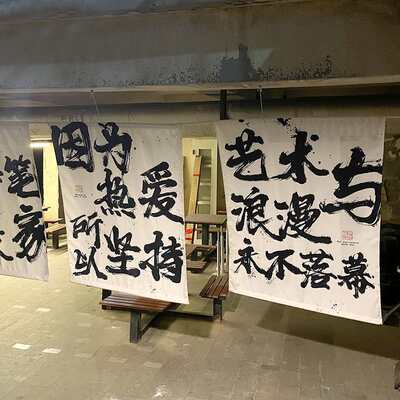 笔
家
因为
热爱
所以坚持
艺术与
浪漫
永不落幕